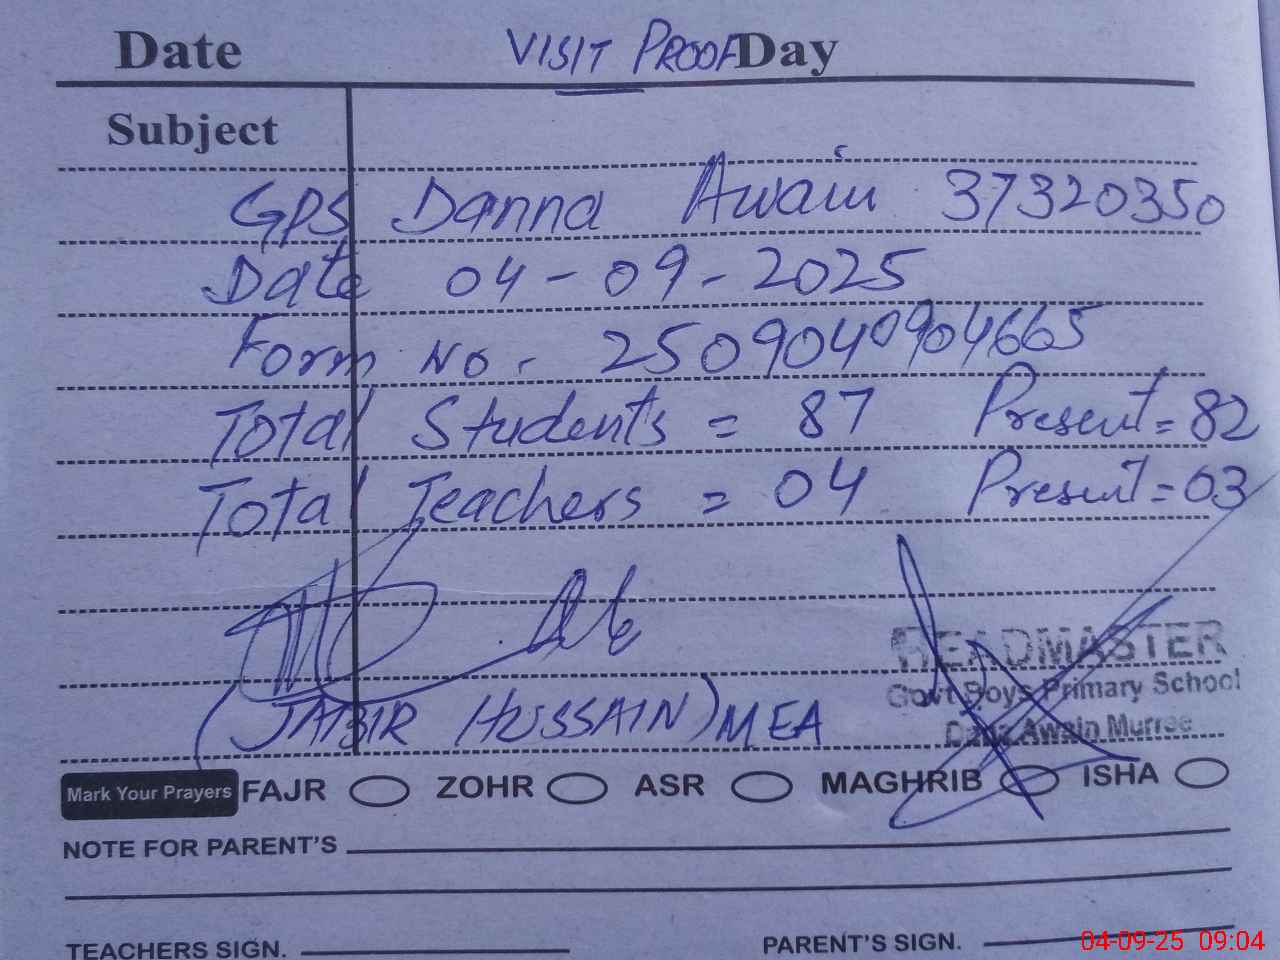 Date VISIT PROOF Day
Subject
GPS Danna Awain 37320350
Date 04-09-2025
Form No. 2509040904665
Total Students = 87 Present = 82
Total Teachers = 04 Present = 03
HEADMASTER
Govt Boys Primary School
Awain Murree
(JAIBIR HUSSAIN) MEA
Mark Your Prayers FAJR ZOHR ASR MAGHRIB ISHA
NOTE FOR PARENT'S
TEACHERS SIGN. PARENT'S SIGN.
04-09-25 09:04